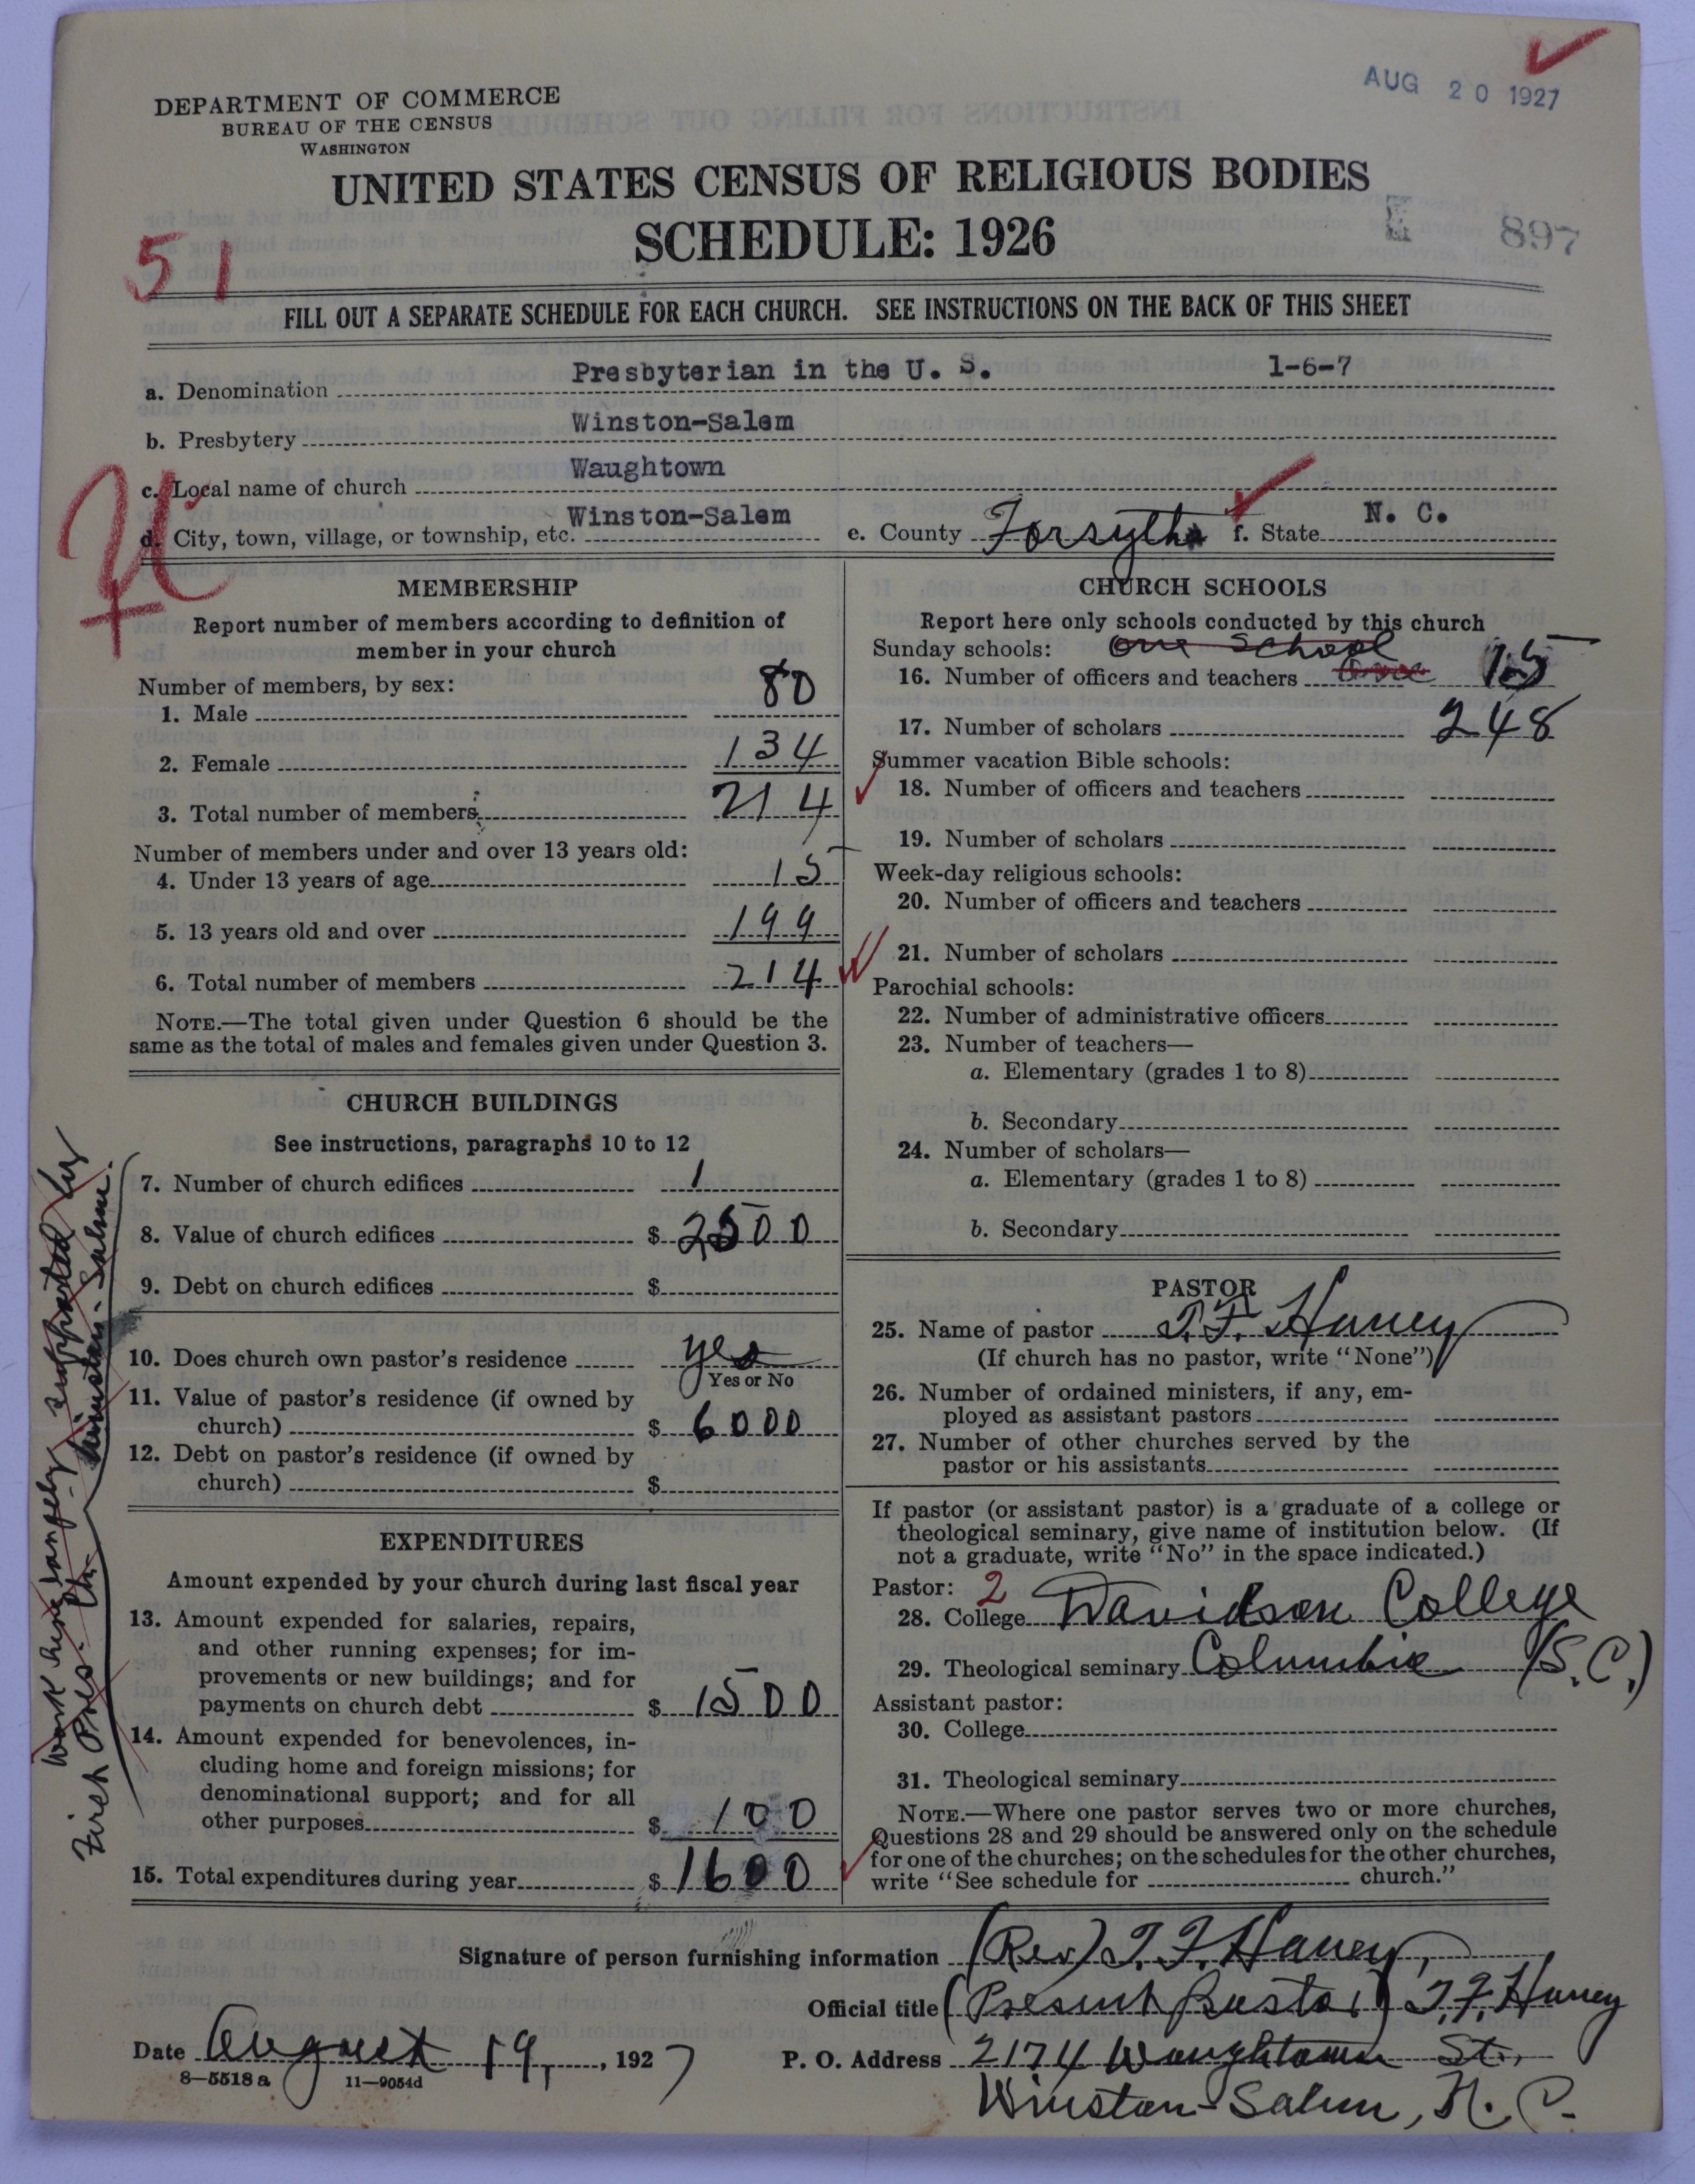 AUG 20 1927
DEPARTMENT OF COMMERCE
BUREAU OF THE CENSUS
WASHINGTON
UNITED STATES CENSUS OF RELIGIOUS BODIES
SCHEDULE: 1926
897
51
FILL OUT A SEPARATE SCHEDULE FOR EACH CHURCH. SEE INSTRUCTIONS ON THE BACK OF THIS SHEET
a. Denomination Presbyterian in the U. S. 1-6-7
b. Presbytery Winston-Salem
c. Local name of church Waughtown
d. City, town, village, or township, etc. Winston-Salem e. County Forsyth f. State N. C.
MEMBERSHIP
Report number of members according to definition of
member in your church
Number of members, by sex:
1. Male 80
2. Female 134
3. Total number of members 214
Number of members under and over 13 years old:
4. Under 13 years of age 15
5. 13 years old and over 199
6. Total number of members 214
NOTE.—The total given under Question 6 should be the
same as the total of males and females given under Question 3.
CHURCH BUILDINGS
See instructions, paragraphs 10 to 12
7. Number of church edifices 1
8. Value of church edifices $ 2500
9. Debt on church edifices $
10. Does church own pastor's residence yes
Yes or No
11. Value of pastor's residence (if owned by
church) $ 6000
12. Debt on pastor's residence (if owned by
church) $
EXPENDITURES
Amount expended by your church during last fiscal year
13. Amount expended for salaries, repairs,
and other running expenses; for im-
provements or new buildings; and for
payments on church debt $ 1500
14. Amount expended for benevolences, in-
cluding home and foreign missions; for
denominational support; and for all
other purposes $ 100
15. Total expenditures during year $ 1600
Work here largely supported by
First Pres. Ch. Winston-Salem.
CHURCH SCHOOLS
Report here only schools conducted by this church
Sunday schools: one school
16. Number of officers and teachers 15
17. Number of scholars 248
Summer vacation Bible schools:
18. Number of officers and teachers
19. Number of scholars
Week-day religious schools:
20. Number of officers and teachers
21. Number of scholars
Parochial schools:
22. Number of administrative officers
23. Number of teachers—
a. Elementary (grades 1 to 8)
b. Secondary
24. Number of scholars—
a. Elementary (grades 1 to 8)
b. Secondary
PASTOR
25. Name of pastor T. F. Haney
(If church has no pastor, write "None")
26. Number of ordained ministers, if any, em-
ployed as assistant pastors
27. Number of other churches served by the
pastor or his assistants
If pastor (or assistant pastor) is a graduate of a college or
theological seminary, give name of institution below. (If
not a graduate, write "No" in the space indicated.)
Pastor: 2
28. College Davidson College
29. Theological seminary Columbia (S.C.)
Assistant pastor:
30. College
31. Theological seminary
NOTE.—Where one pastor serves two or more churches,
Questions 28 and 29 should be answered only on the schedule
for one of the churches; on the schedules for the other churches,
write "See schedule for church."
Signature of person furnishing information (Rev) T. F. Haney,
Official title (Present Pastor) T. F. Haney
Date August 19, 1927 P. O. Address 2174 Waughtown St.,
8—5518 a 11—9054d
Winston-Salem, N. C.